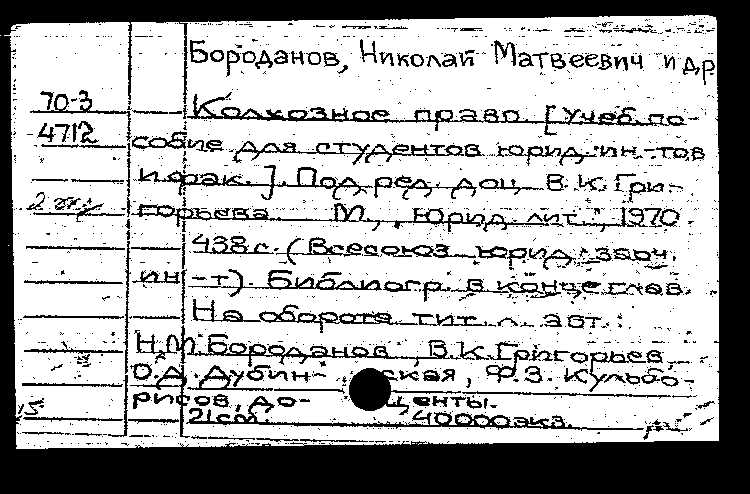 Бороданов, Николай Матвеевич и др
70-3
Колхозное право [Учеб. по-
4712
собие для студентов юрид. ин-тов
и фак.]. Под ред. доц. В.К. Гри-
2 экз
горьева М., "Юрид. лит.", 1970.
438 с. (Всесоюз. юрид. заоч.
ин-т). Библиогр. в конце глав.
На обороте тит. л. авт.:
Н.М. Бороданов, В.К. Григорьев,
О.Д. Дубин- ская, Ф.З. Кульбо-
рисов, до- центы.
21 см. 40000 экз.